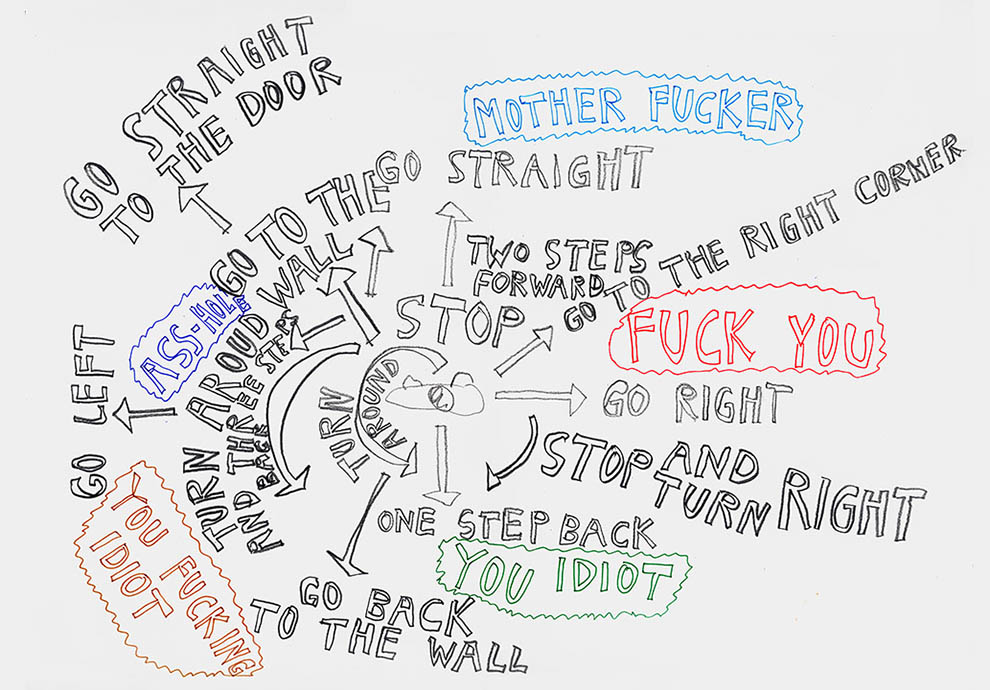 GO STRAIGHT
TO THE DOOR
MOTHER FUCKER
GO STRAIGHT
GO TO THE
WALL
TWO STEPS
FORWARD
GO TO THE RIGHT CORNER
ASS-HOLE
STOP
FUCK YOU
GO LEFT
TURN AROUD
AND THREE STEPS
BACK
TURN
AROUND
GO RIGHT
STOP AND
TURN RIGHT
ONE STEP BACK
YOU IDIOT
YOU FUCKING
IDIOT
GO BACK
TO THE WALL